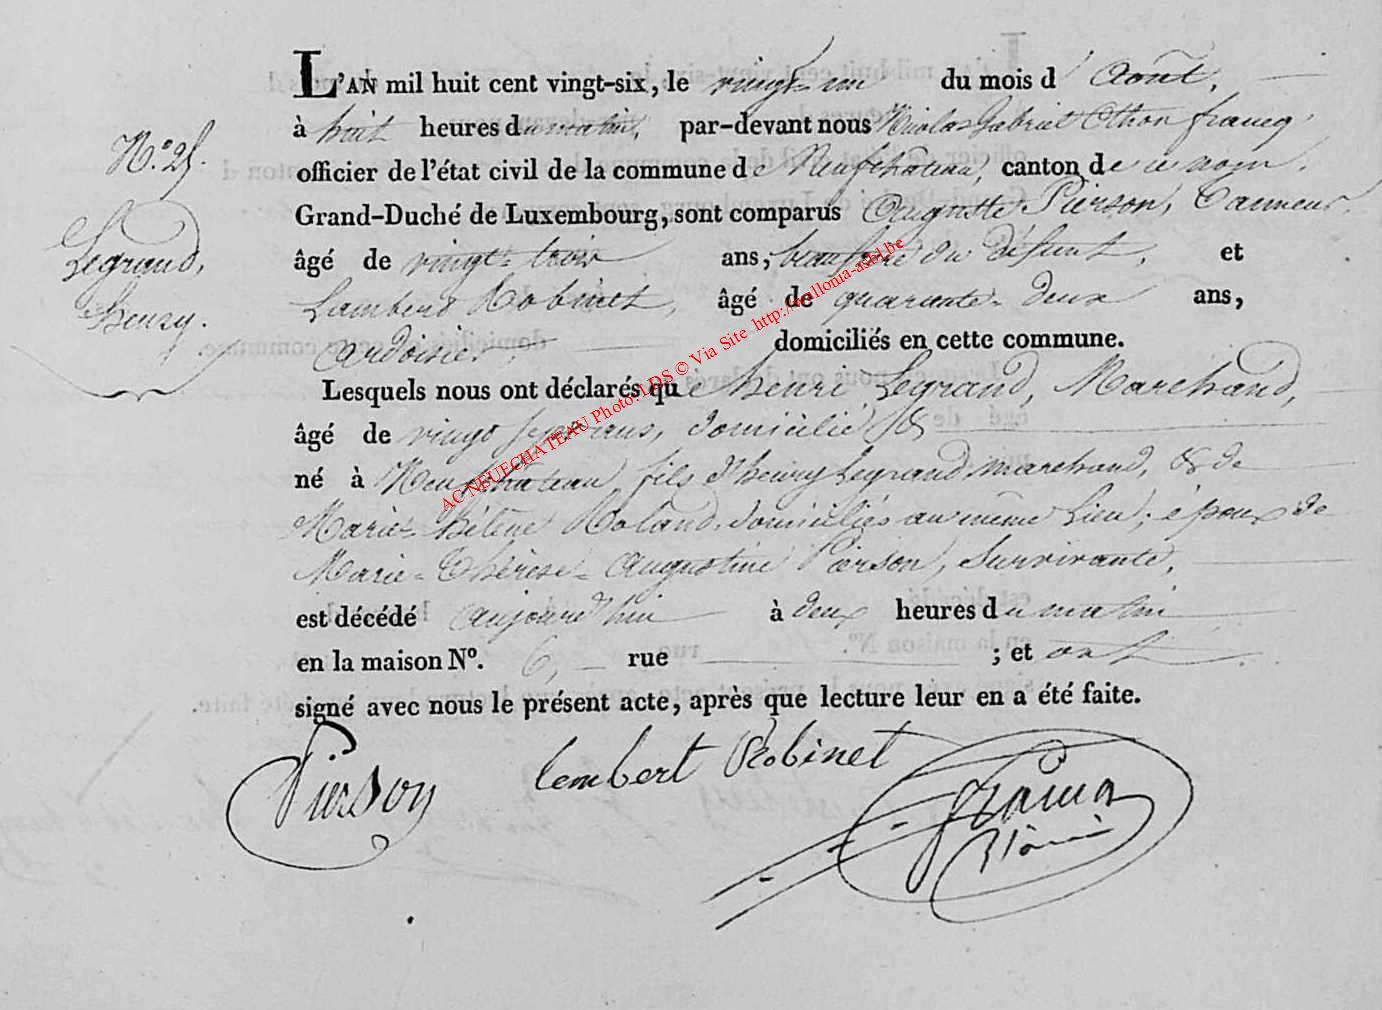 L'AN mil huit cent vingt-six, le vingt-un du mois d'Août,
à huit heures du matin, par-devant nous Nicolas Gabriel Othon francq
N.° 25.
officier de l'état civil de la commune de Neufchâteau, canton de ce nom,
Grand-Duché de Luxembourg, sont comparus Auguste Pierson, Tanneur,
Legrand,
âgé de vingt-trois ans, beaufrère du défunt, et
henry.
Lambert Robinet, âgé de quarante-deux ans,
ardoisier, domiciliés en cette commune.
Lesquels nous ont déclarés que henri Legrand, Marchand,
âgé de vingt sept ans, domicilié &
né à Neufchâteau, fils d'henry Legrand marchand, & de
Marie-hélène Roland, domiciliés au même Lieu; époux de
Marie-Thérèse-Augustine Pierson, Survivante,
est décédé aujourd'hui à deux heures du matin
en la maison N°. 6, rue ; et ont
signé avec nous le présent acte, après que lecture leur en a été faite.
Pierson lembert Robinet
AC NEUFCHATEAU Photo: LDS © Via Site http://wallonia-asbl.be